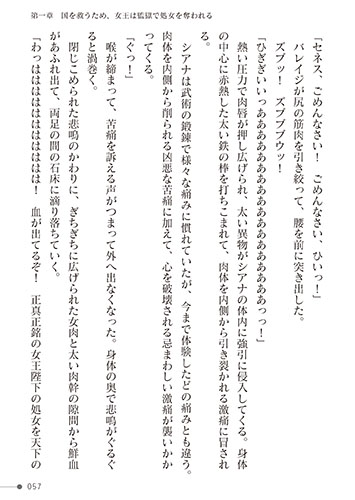 第一章　国を救うため、女王は監獄で処女を奪われる
「セネス、ごめんなさい！　ごめんなさい、ひいっ！」
バレイジが尻の筋肉を引き絞って、腰を前に突き出した。
ズブッ！　ズブブブウッ！
「ひぎぃいいっああああああああああああああああああああああっっ！」
熱い圧力で肉唇が押し広げられ、太い異物がシアナの体内に強引に侵入してくる。身体
の中心に赤熱した太い鉄の棒を打ちこまれて、肉体を内側から引き裂かれる激痛に冒され
る。
シアナは武術の鍛錬で様々な痛みに慣れていたが、今まで体験したどの痛みとも違う。
肉体を内側から削られる凶悪な苦痛に加えて、心を破壊される忌まわしい激痛が襲いかか
ってくる。
「ぐっ！」
喉が締まって、苦痛を訴える声がつまって外へ出なくなった。身体の奥で悲鳴がぐるぐ
ると渦巻く。
閉じこめられた悲鳴のかわりに、ぎちぎちに広げられた女肉と太い肉幹の隙間から鮮血
があふれ出て、両足の間の石床に滴り落ちていく。
「わっはははははははははははは！　血が出てるぞ！　正真正銘の女王陛下の処女を天下の
057